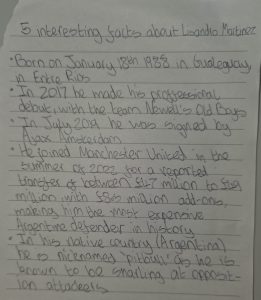 5 interesting facts about Lisandro Martinez
• Born on January 18th 1988 in Gualeguay,
in Entre Rios
• In 2017 he made his proffessional
debut, with the team Newell's Old Boys
• In July 2019 he was signed by
Ajax Amsterdam
• He joined Manchester United in the
summer of 2022 for a reported
transfer of between to
million with million add-ons,
making him the most expensive
Argentine defender in history
• In his native country (Argentina)
he is nicknamed 'pitbull' as he is
known to be snarling at opposit-
ion attackers